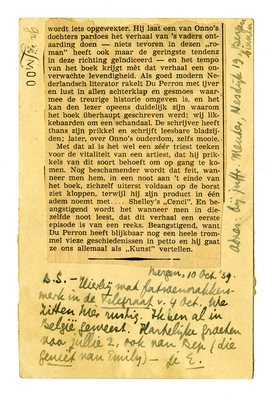 wordt iets opgewekter. Hij laat een van Onno's
dochters pardoes het verhaal van 's vaders ont-
aarding doen — niets tevoren in dezen „ro-
man" heeft ook maar de geringste tendenz
in deze richting geïndiceerd — en het tempo
van het boek krijgt mèt dat verhaal een on-
verwachte levendigheid. Als goed modern Ne-
derlandsch literator rakelt Du Perron met ijver
en lust in allen achterklap en gesmoes waar-
mee de treurige historie omgeven is, en het
kan den lezer opeens duidelijk zijn waarom
het boek überhaupt geschreven werd: wij lik-
kebaarden om een schandaal. De schrijver heeft
thans zijn prikkel en schrijft leesbare bladzij-
den; later, over Onno's ouderdom, zelfs mooie.
Met dat al is het wel een zéér triest teeken
voor de vitaliteit van een artiest, dat hij prik-
kels van dit soort behoeft om op gang te ko-
men. Nog beschamender wordt dat feit, wan-
neer men hem, in een noot aan 't einde van
het boek, zichzelf uiterst voldaan op de borst
ziet kloppen, terwijl hij zijn product in één
adem noemt met . . . Shelley's „Cenci". En be-
angstigend wordt het wanneer men in die-
zelfde noot leest, dat dit verhaal een eerste
episode is van een reeks. Beangstigend, want
Du Perron heeft blijkbaar nog een heele trom-
mel vieze geschiedenissen in petto en hij gaat
ze ons allemaal als „Kunst" vertellen.
Bergen, 10 Oct. '39.
in de Telegraaf v. 4 Oct. We
zitten hier rustig. Heb en al in
België geweest. Hartelijke groeten
voor jullie 2, ook van Bep (die
geniet van Emily) — je E.